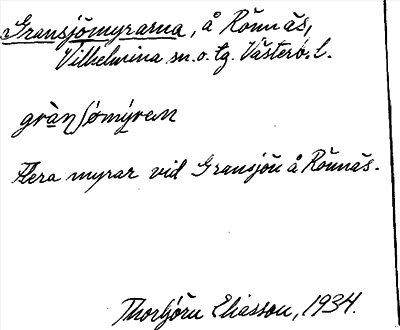 Gransjömyrarna, å Rönnäs,
Vilhelmina sn. o. tg. Västerb. l.
grànʃómýren
Flera myrar vid Gransjön å Rönnäs.
Thorbjörn Eliasson, 1934.